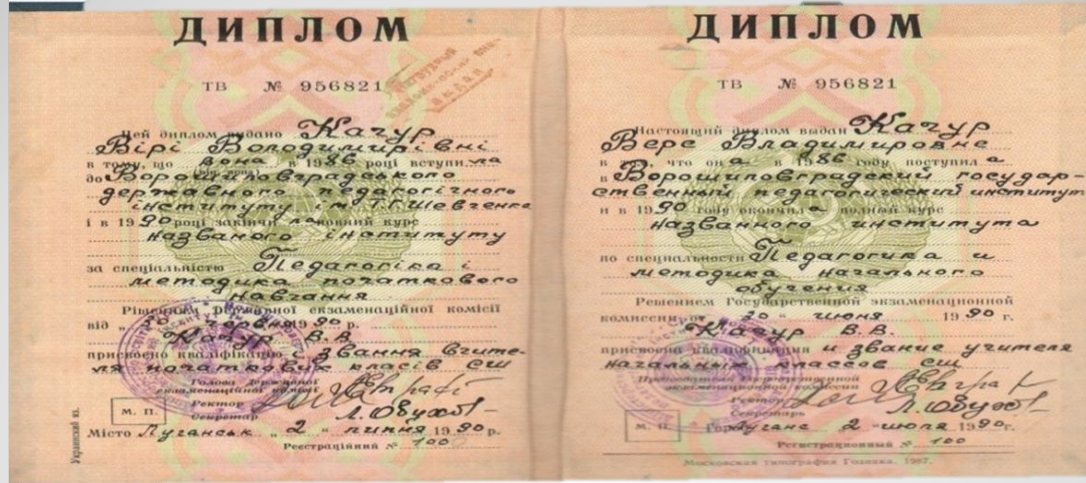 ДИПЛОМ
ТВ № 956821
Цей диплом видано Качур
Вірі Володимирівні
в тому, що вона в 1986 році вступила
до Ворошиловградського
державного педагогічного
інституту ім. Т.Г. Шевченка
і в 1990 році закінчила повний курс
названого інституту
за спеціальністю Педагогіка і
методика початкового
навчання
Рішенням Державної екзаменаційної комісії
від „20 червня 1990 р.
Качур В.В.
присвоєно кваліфікацію і звання вчите-
ля початкових класів СШ
Голова Державної
екзаменаційної комісії
Ректор
Секретар Л. Обухов
М. П.
Місто Луганськ „ 2 " липня 1990 р.
Реєстраційний № 100
Украинский яз.
ДИПЛОМ
ТВ № 956821
Настоящий диплом выдан Качур
Вере Владимировне
в том, что она в 1986 году поступила
в Ворошиловградский государ-
ственный педагогический институт
и в 1990 году окончила полный курс
названного института
по специальности Педагогика и
методика начального
обучения
Решением Государственной экзаменационной
комиссии от „20" июня 1990 г.
Качур В.В.
присвоена квалификация и звание учителя
начальных классов СШ
Председатель Государственной
экзаменационной комиссии
Ректор
Секретарь Л. Обухов
М. П.
Город Луганс 2 июля 1990 г.
Регистрационный № 100
Московская типография Гознака. 1987.